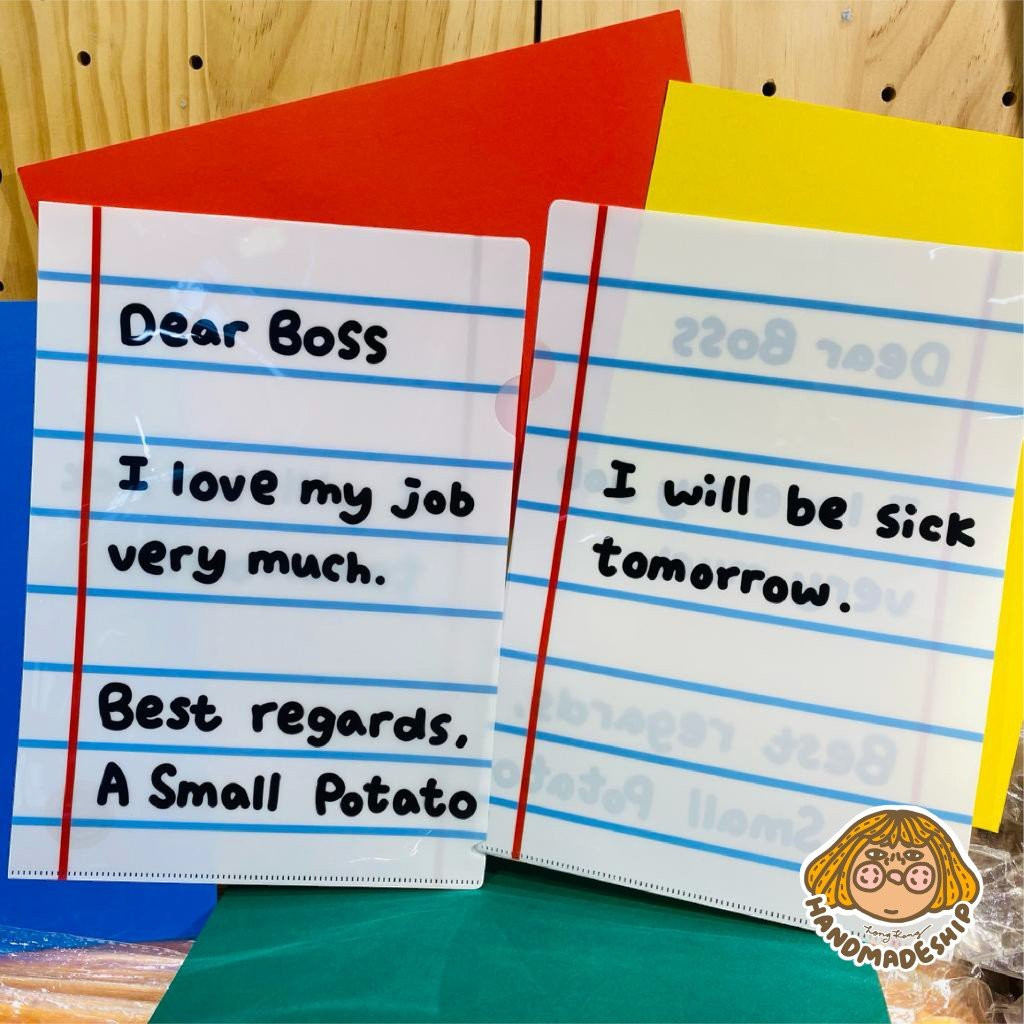 Dear Boss
I love my job
very much.
Best regards,
A Small Potato
I will be sick
tomorrow.
Hong Kong
HANDMADESHIP